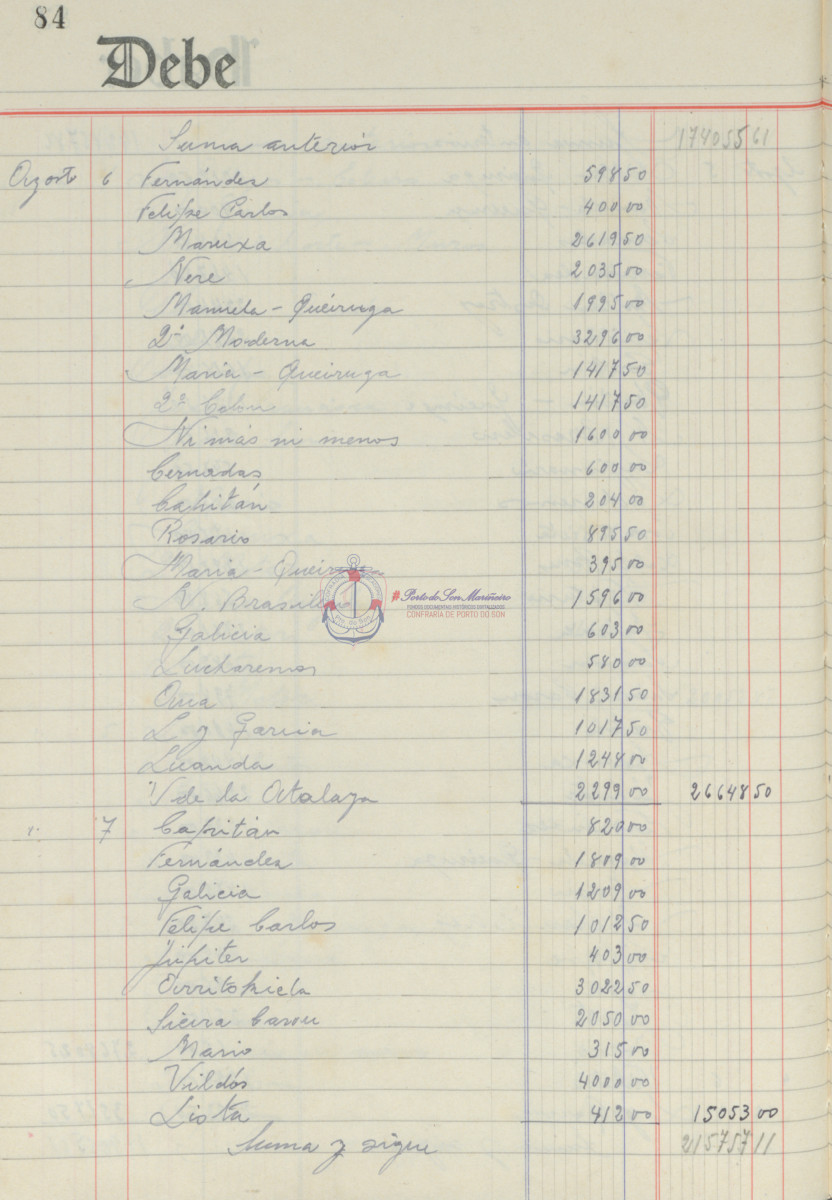 84
Debe
Suma anterior 174055 61
Agosto 6 Fernández 598 50
Felipe Carlos 400 00
Maruxa 2619 50
Nere 2035 00
Manuela - Queiruga 1995 00
2ª Moderna 3296 00
Maria - Queiruga 1417 50
2ª Colon 1417 50
Ni más ni menos 1600 00
Cernadas 600 00
Capitán 204 00
Rosario 895 50
Maria - Queiruga 395 00
N. Brasileño 1596 00
Galicia 603 00
Lucharemos 580 00
Oma 1831 50
L y Garcia 1017 50
Luanda 1248 00
V de la Atalaya 2299 00 26648 50
" 7 Capitán 820 00
Fernández 1809 00
Galicia 1209 00
Felipe Carlos 1012 50
Júpiter 403 00
3022 50
Sieira Carou 2050 00
Mario 315 00
Vildós 4000 00
Lista 412 00 15053 00
Suma y sigue 215757 11
#Porto do Son Mariñeiro
FONDOS DOCUMENTAIS HISTÓRICOS DIXITALIZADOS
CONFRARÍA DE PORTO DO SON